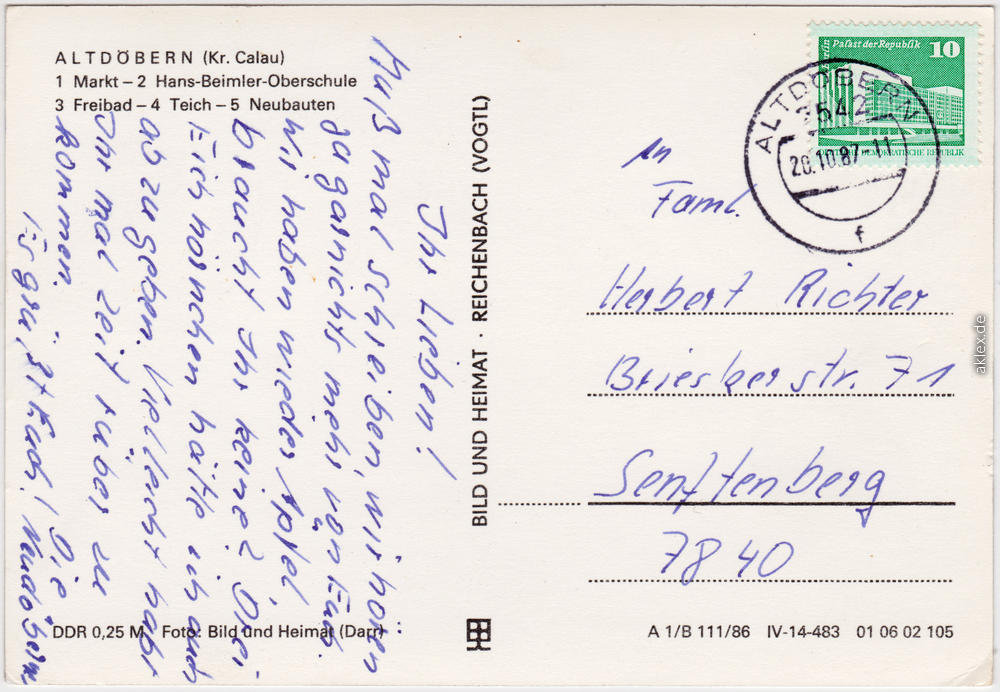 ALTDÖBERN (Kr. Calau)
1 Markt – 2 Hans-Beimler-Oberschule
3 Freibad – 4 Teich – 5 Neubauten
Ihr Lieben!
Muß mal schreiben, wir hören
ja garnichts mehr von Euch.
Wir haben wieder Äpfel
braucht Ihr keine? Drei
Eichhörnchen hätte ich auch
abzugeben. Vielleicht habt
Ihr mal Zeit rüber zu
kommen.
Es grüßt Euch! Die
DDR 0,25 M Foto: Bild und Heimat (Darr)
BILD UND HEIMAT · REICHENBACH (VOGTL)
Palast der Republik 10
Berlin
DEMOKRATISCHE REPUBLIK
ALTDÖBERN
7542
20.10.87-11
f
An
Faml.
Herbert Richter
Briesker str. 71
Senftenberg
7840
A 1/B 111/86 IV-14-483 01 06 02 105
aklex.de